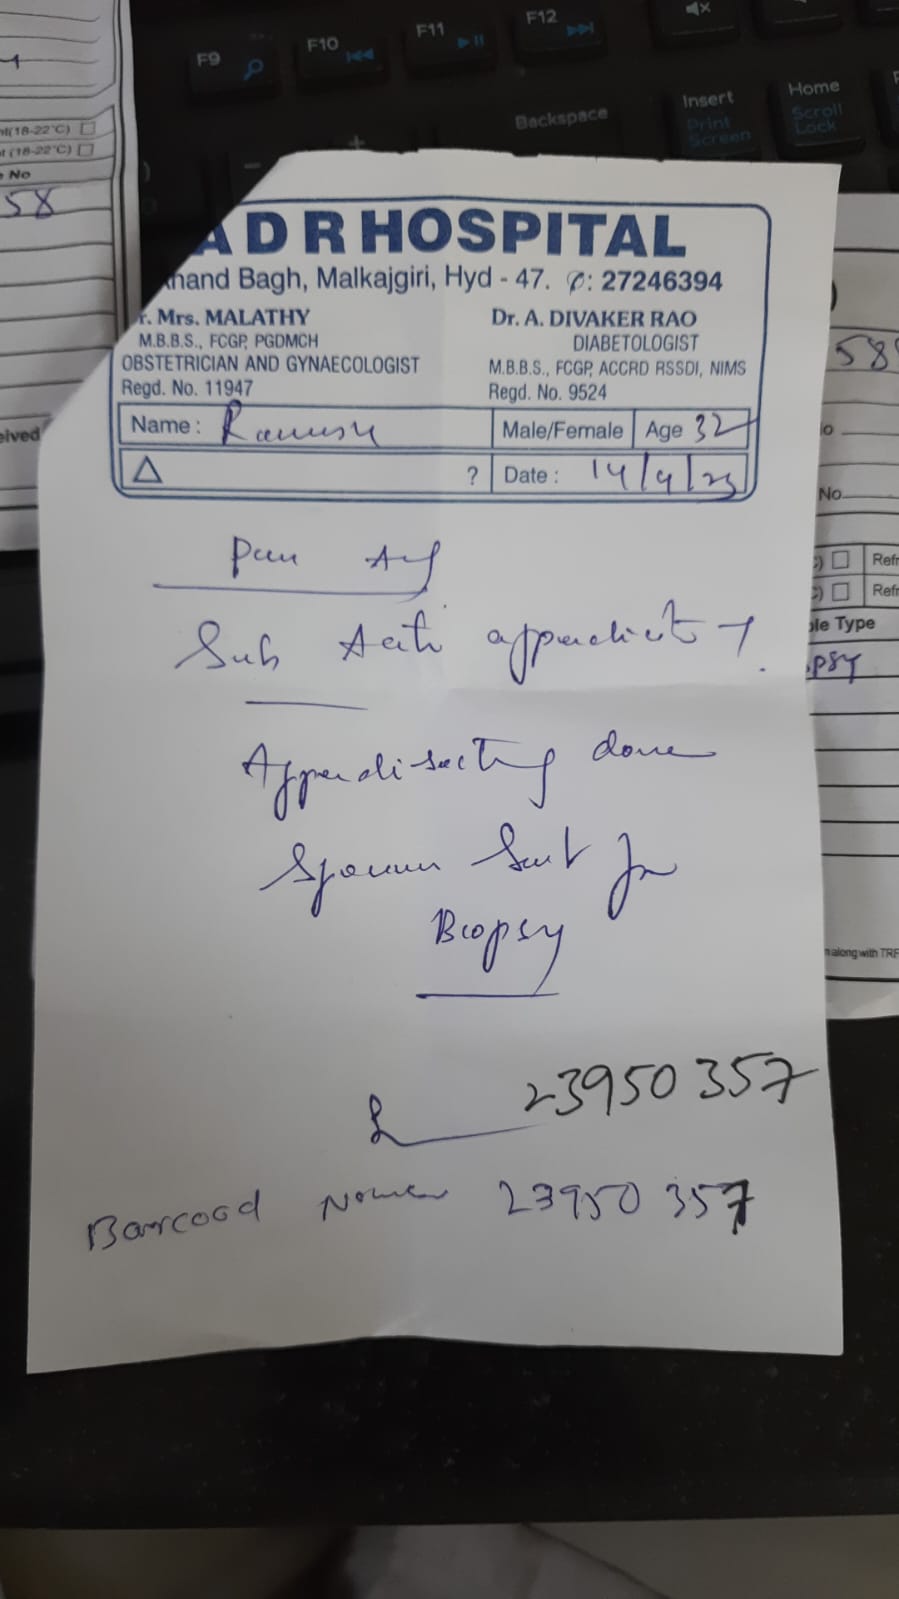 F9 F10 F11 F12
Backspace
Insert
Print
Screen
Home
Scroll
Lock
(18-22°C)
(18-22°C)
No
58
ADR HOSPITAL
nand Bagh, Malkajgiri, Hyd - 47. ✆: 27246394
r. Mrs. MALATHY
M.B.B.S., FCGP, PGDMCH
OBSTETRICIAN AND GYNAECOLOGIST
Regd. No. 11947
Dr. A. DIVAKER RAO
DIABETOLOGIST
M.B.B.S., FCGP, ACCRD RSSDI, NIMS
Regd. No. 9524
Name : Ramesh Male/Female Age 32
△ ? Date : 14/9/23
Pain
Sub
Appendisecting done
Sent for
Biopsy
23950357
Barcood 23950357
eived
58
No
Refr
Refr
le Type
psy
along with TRF